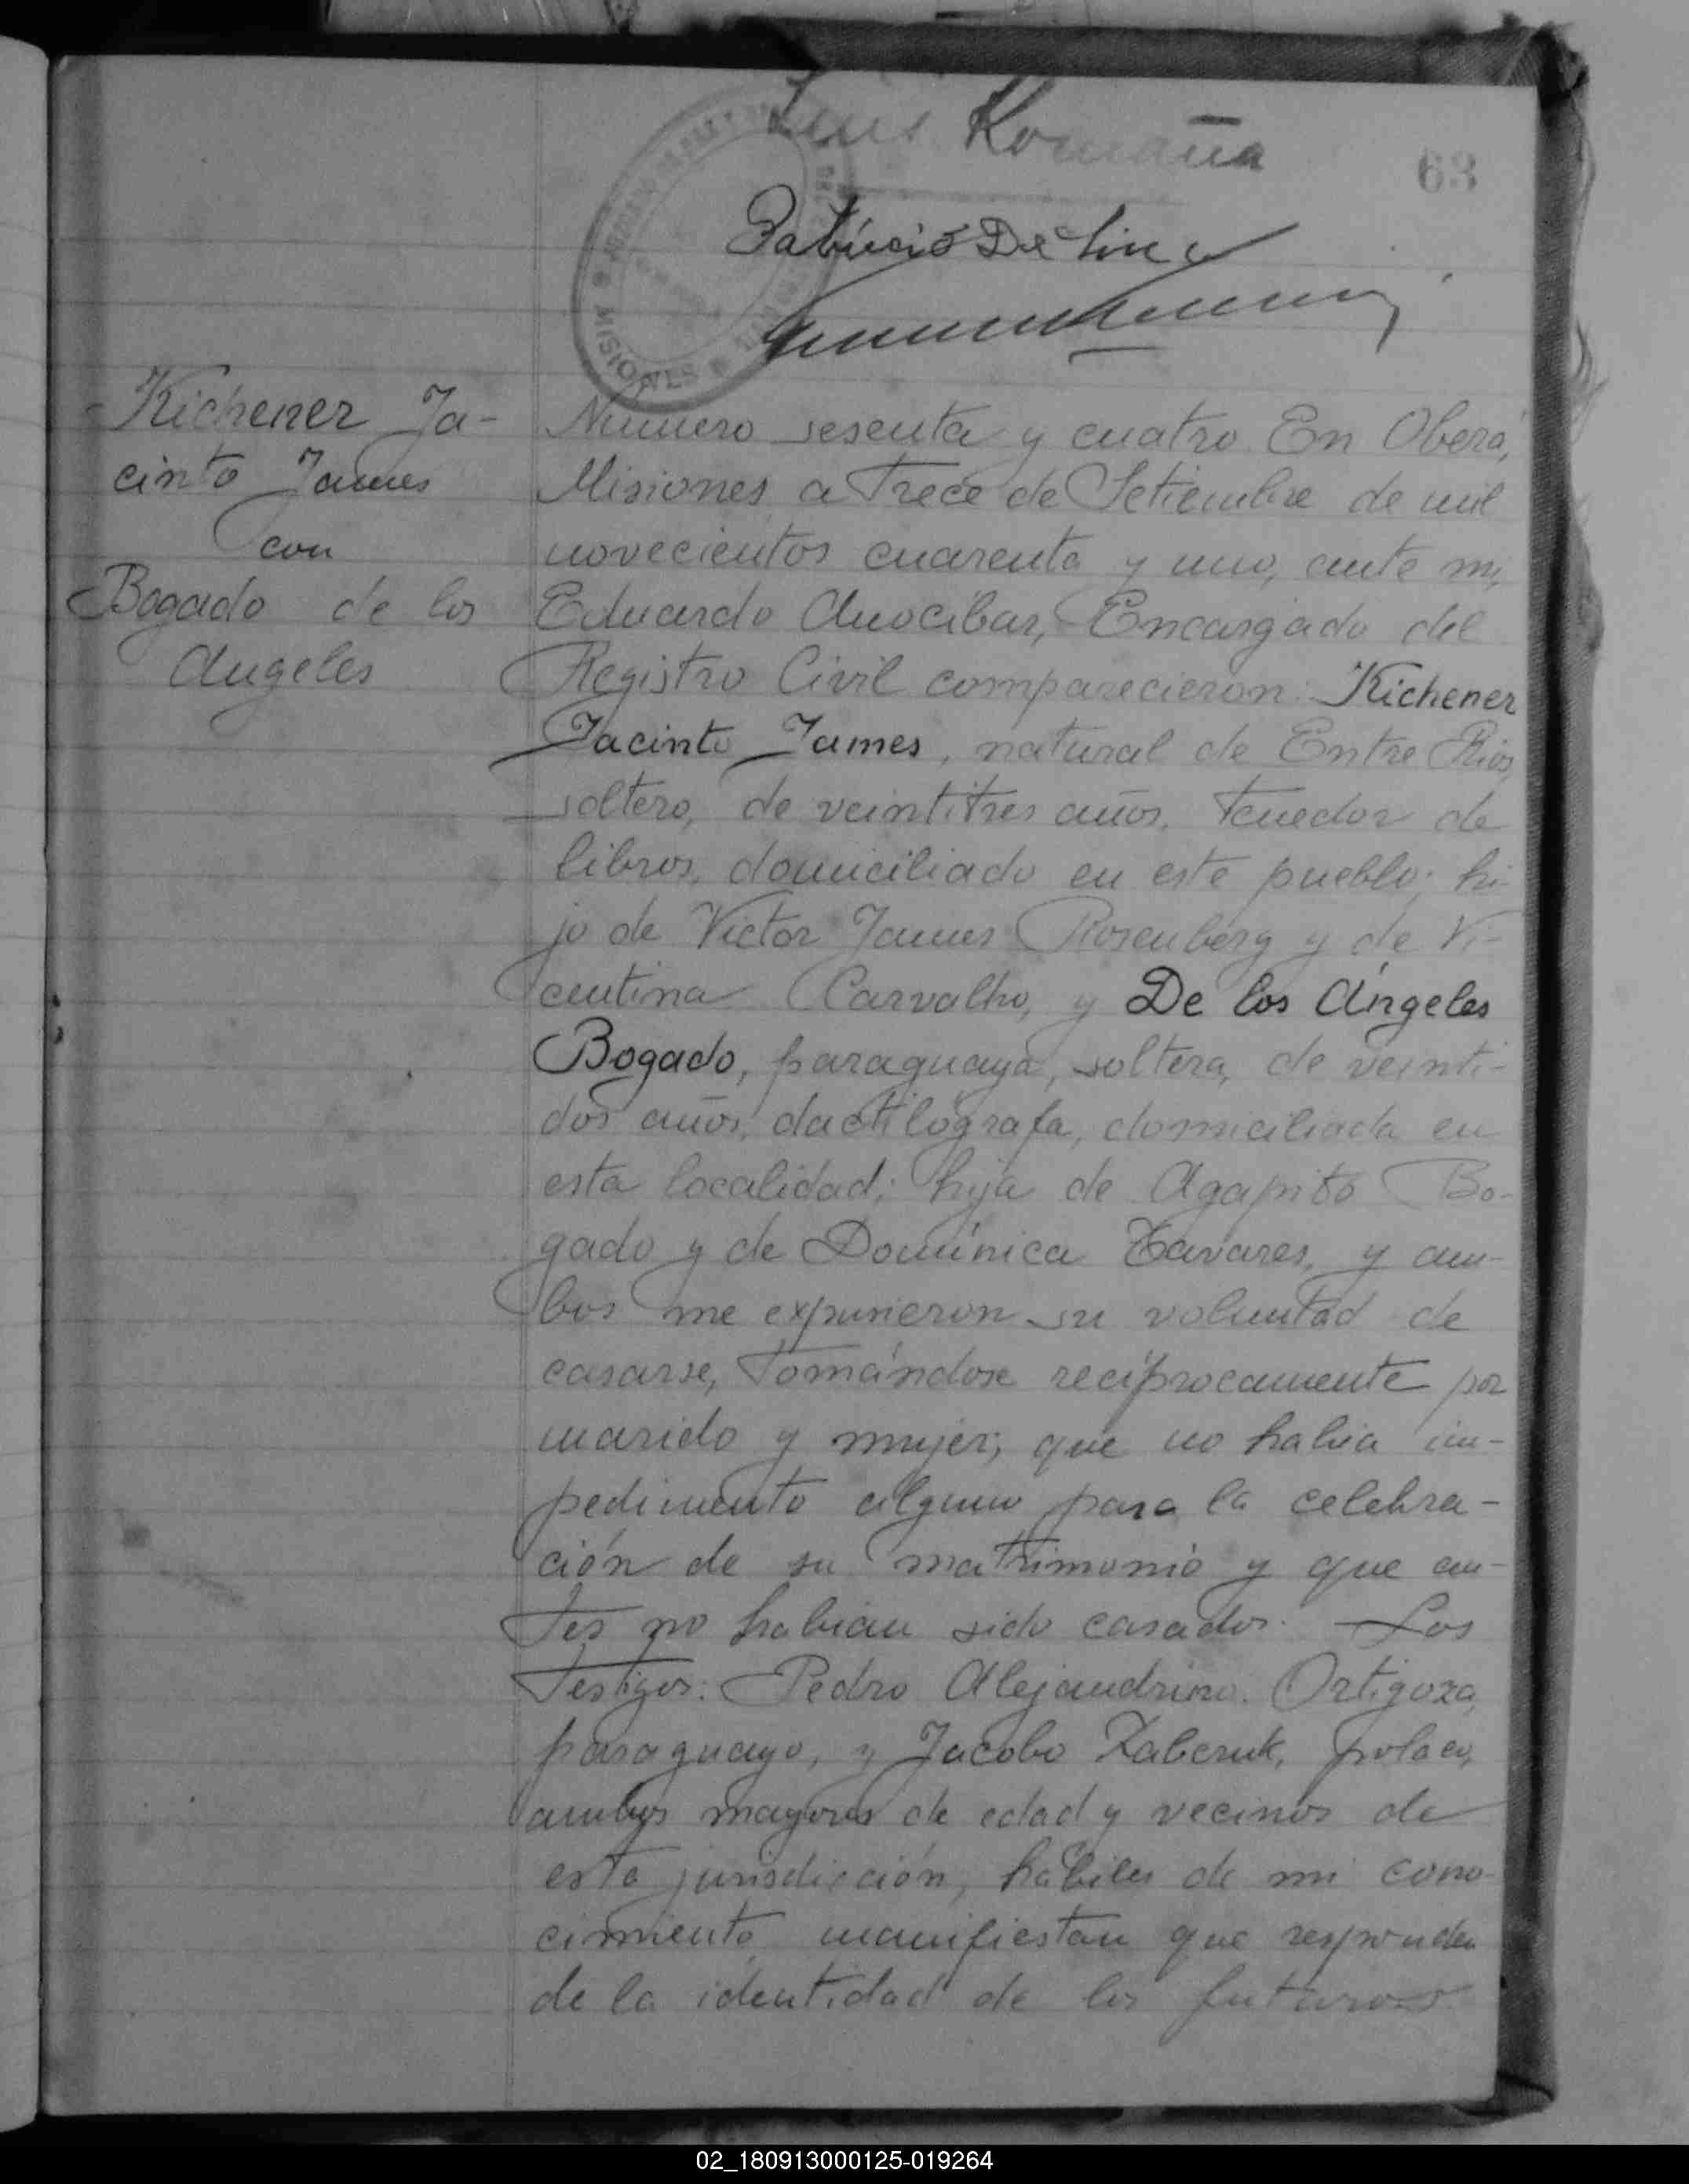 Luis Romaña
63
MISIONES
Kichener Ja-
cinto James
con
Bogado de los
Angeles
Número sesenta y cuatro. En Oberá,
Misiones, a Trece de Setiembre de mil
novecientos cuarenta y uno, ante mi,
Eduardo Anocíbar, Encargado del
Registro Civil comparecieron: Kichener
Jacinto James, natural de Entre Rios,
soltero, de veintitres años, Tenedor de
libros, domiciliado en este pueblo; hi-
jo de Victor James Rosenberg y de Vi-
centina Carvalho, y De los Ángeles
Bogado, paraguaya, soltera, de veinti-
dos años, dactilógrafa, domiciliada en
esta localidad; hija de Agapito Bo-
gado y de Domínica Tavares, y am-
bos me expusieron su voluntad de
casarse, Tomándose recíprocamente por
marido y mujer; que no habia im-
pedimento alguno para la celebra-
ción de su matrimonio y que an-
tes no habian sido casados. Los
Testigos: Pedro Alejandrino Ortigoza,
paraguayo, y Jacobo Zaberuk, polaco,
ambos mayores de edad y vecinos de
esta jurisdicción, hábiles de mi cono-
cimiento, manifiestan que responden
de la identidad de los futuros
02_180913000125-019264